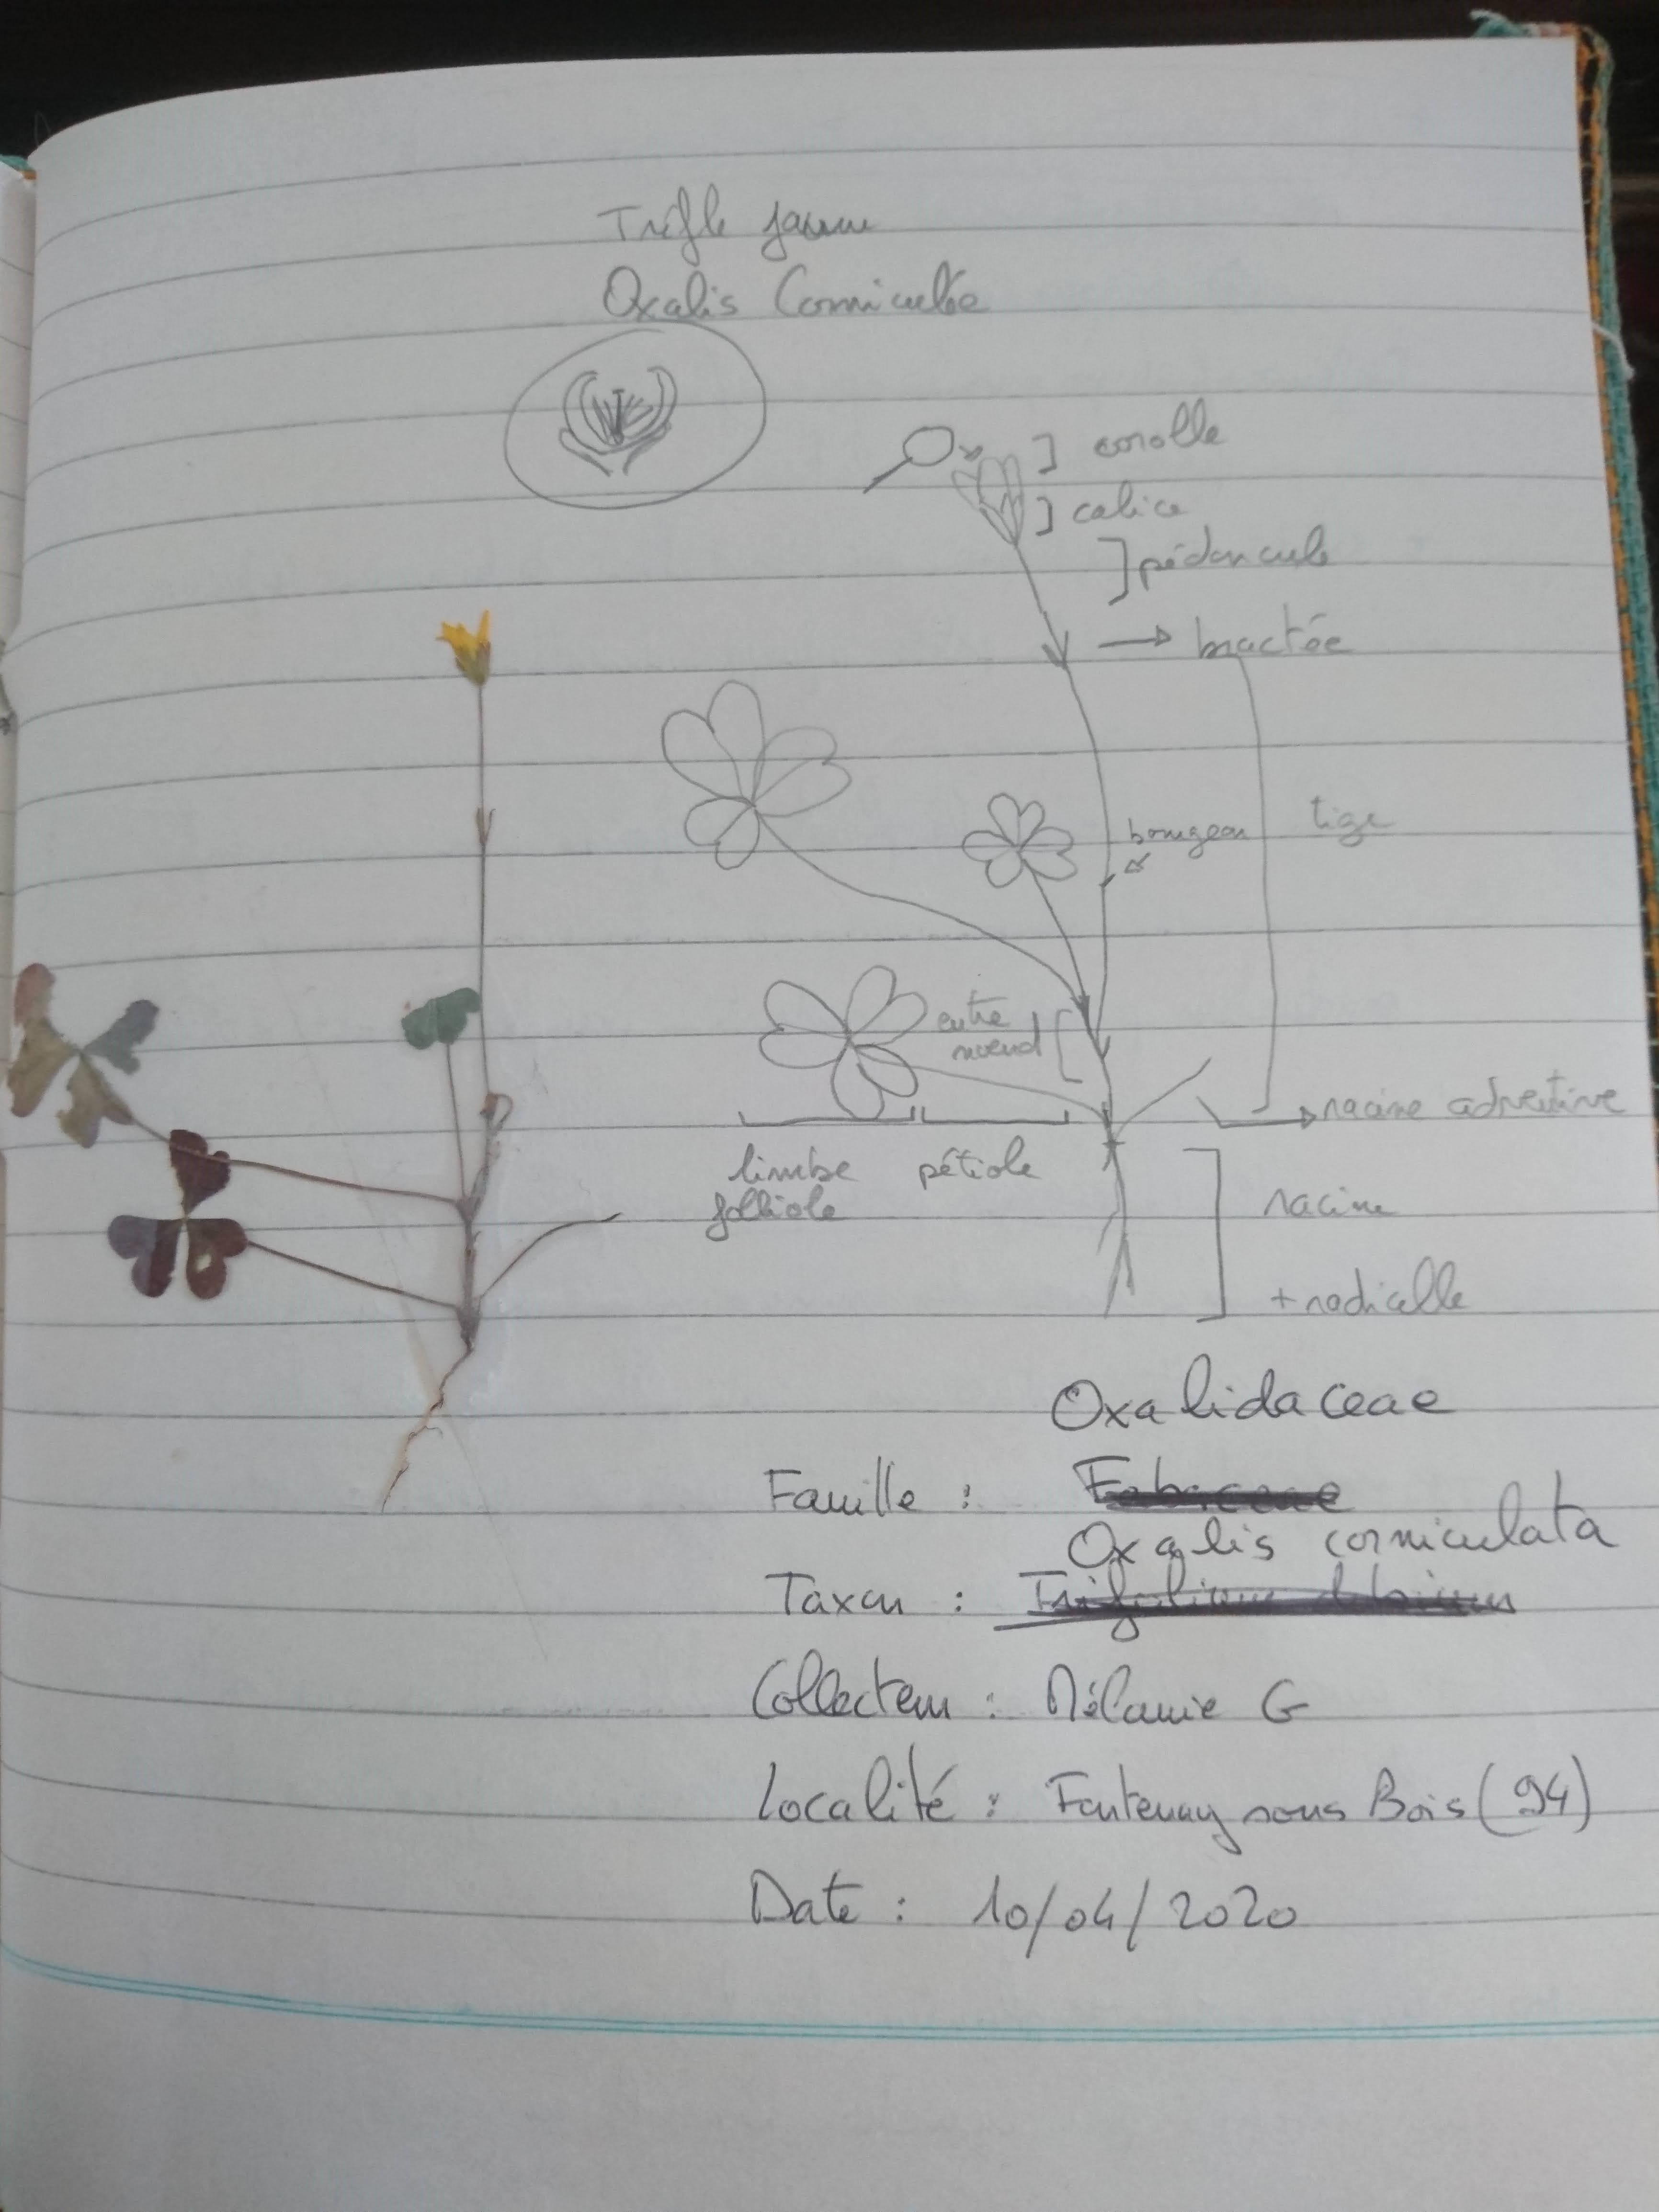 Trèfle jaune
Oxalis Corniculée
corolle
calice
pédoncule
bractée
bourgeon
tige
entre
noeud
racine adventive
limbe
folliole
pétiole
racine
+ radicelle
Oxalidaceae
Famille : Fabaceae
Oxalis corniculata
Taxon : Trifolium dubium
Collecteur : Mélanie G
Localité : Fontenay sous Bois (94)
Date : 10/04/2020